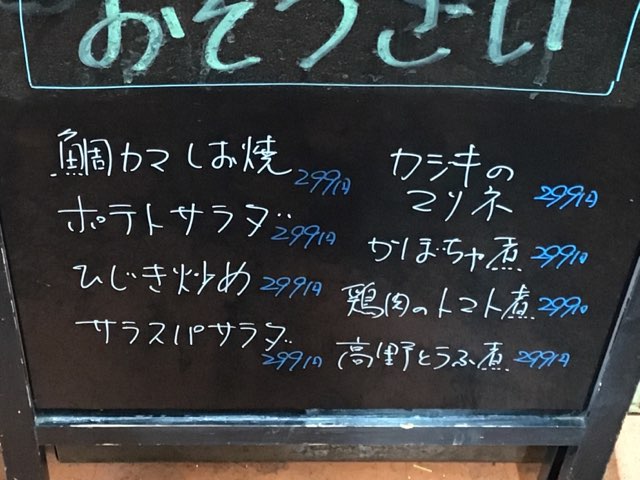 おそうざい
鯛カマしお焼 299円
ポテトサラダ 299円
ひじき炒め 299円
サラスパサラダ
299円
カジキの
マリネ 299円
かぼちゃ煮 299円
鶏肉のトマト煮 299円
高野とうふ煮 299円